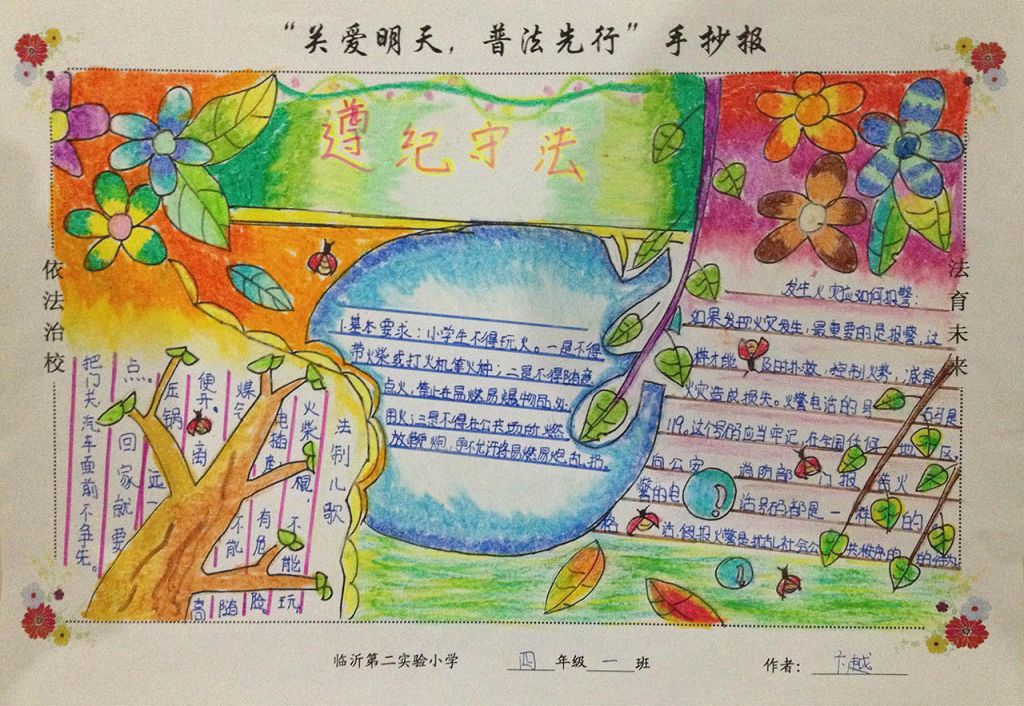 “关爱明天，普法先行”手抄报
遵纪守法
依法治校
法育未来
1.基本要求：小学生不得玩火。一是不得
带火柴或打火机等火种；二是不得随意
点火，禁止在易燃易爆物品处
用火；三是不得在公共场所燃
放鞭炮，更不允许将易燃易炮乱扔。
发生火灾应如何报警：
如果发现火灾发生，最重要的是报警，这
样才能及时扑救，控制火势，减轻
火灾造成损失。火警电话的号码是
119。这个号码应当牢记，在全国任何地区，
向公安消防部门报告火
警的电话号码都是一样的
法制儿歌
火柴棍，不能玩，
电插座，有危险
煤气不能随
便开，离
压锅远一
点。回家就要
把门关，汽车面前不争先。
临沂第二实验小学 四年级一班 作者：卞越